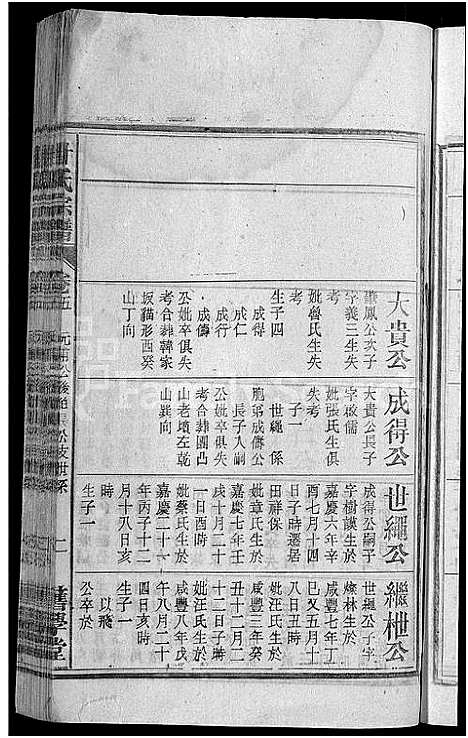 大貴公
讓鳳公次子
字義三生失
考
妣魯氏生失
考
生子四
成得
成仁
成行
成儔
公妣卒俱失
考合葬韓家
坂貓形酉癸
山丁向
成得公
大貴公長子
字啟儒
妣張氏生俱
失考
子一
世繩 係
胞弟成儔公
長子入嗣
公妣卒俱失
考合葬團凸
山老墳左乾
山巽向
世繩公
成得公嗣子
字樹謨生於
嘉慶六年辛
酉七月十四
日子時遷居
田祥保
妣章氏生於
嘉慶七年壬
戌十月二十
一日酉時
妣蔡氏生於
嘉慶二十一
年丙子十二
月十八日亥
時
生子一
繼枻公
世繩公子字
燦林生於
咸豐七年丁
巳又五月十
八日丑時
妣汪氏生於
咸豐三年癸
丑十二月二
十二日子時
妣汪氏生於
咸豐八年戊
午八月二十
四日亥時
生子一
以飛
公卒於
氏宗譜
卷之五